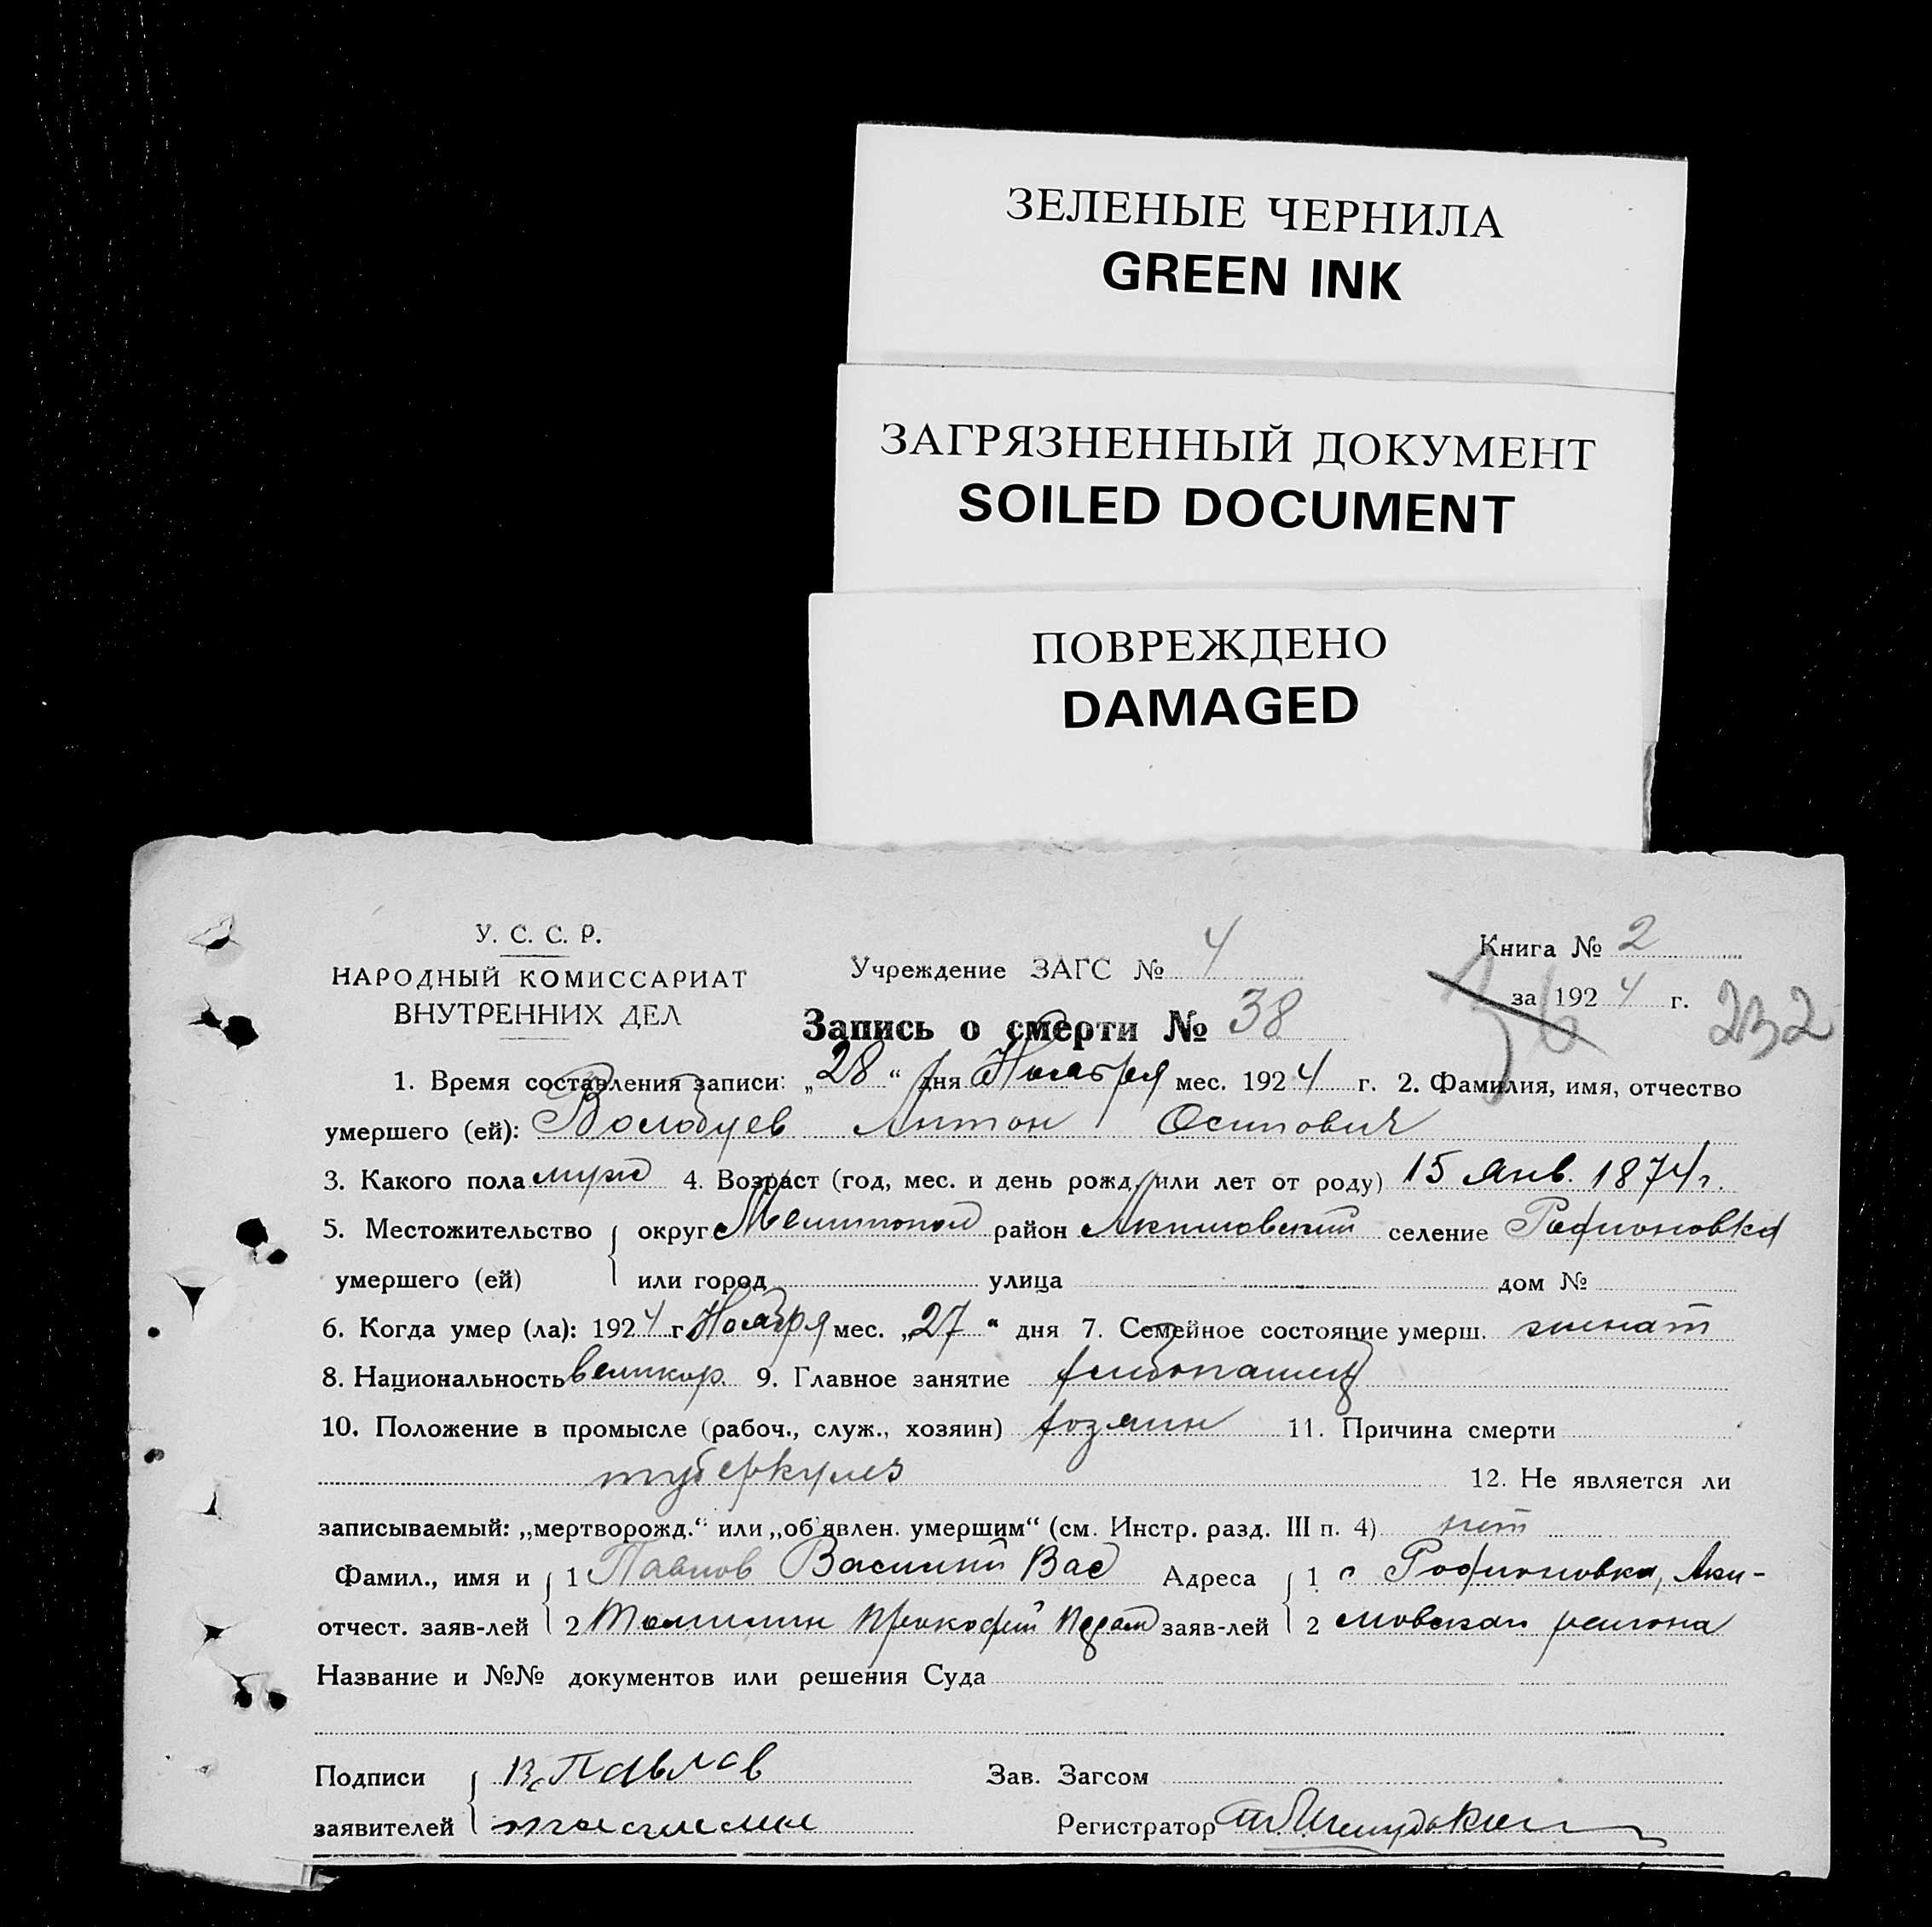 ЗЕЛЕНЫЕ ЧЕРНИЛА
GREEN INK
ЗАГРЯЗНЕННЫЙ ДОКУМЕНТ
SOILED DOCUMENT
ПОВРЕЖДЕНО
DAMAGED
У. С. С. Р.
НАРОДНЫЙ КОМИССАРИАТ
ВНУТРЕННИХ ДЕЛ
Учреждение ЗАГС № 4
Книга № 2
за 1924 г.
36
232
Запись о смерти № 38
1. Время составления записи: „28“ дня Ноября мес. 1924 г. 2. Фамилия, имя, отчество
умершего (ей): Антон Осипович
3. Какого пола муж 4. Возраст (год, мес. и день рожд. или лет от роду) 15 янв. 1874 г.
5. Местожительство округ Мелитопол район Акимовский селение Родионовка
умершего (ей) или город улица дом №
6. Когда умер (ла): 1924 г. Ноября мес. „27“ дня 7. Семейное состояние умерш. женат
8. Национальность великор. 9. Главное занятие хлебопашец
10. Положение в промысле (рабоч., служ., хозяин) хозяин 11. Причина смерти
туберкулез 12. Не является ли
записываемый: „мертворожд.“ или „об'явлен. умершим“ (см. Инстр. разд. III п. 4) нет
Фамил., имя и 1 Павлов Василий Вас Адреса 1 с Родионовка, Аки-
отчест. заяв-лей 2 Прокофий заяв-лей 2 мовского района
Название и №№ документов или решения Суда
Подписи В. Павлов Зав. Загсом
заявителей Регистратор